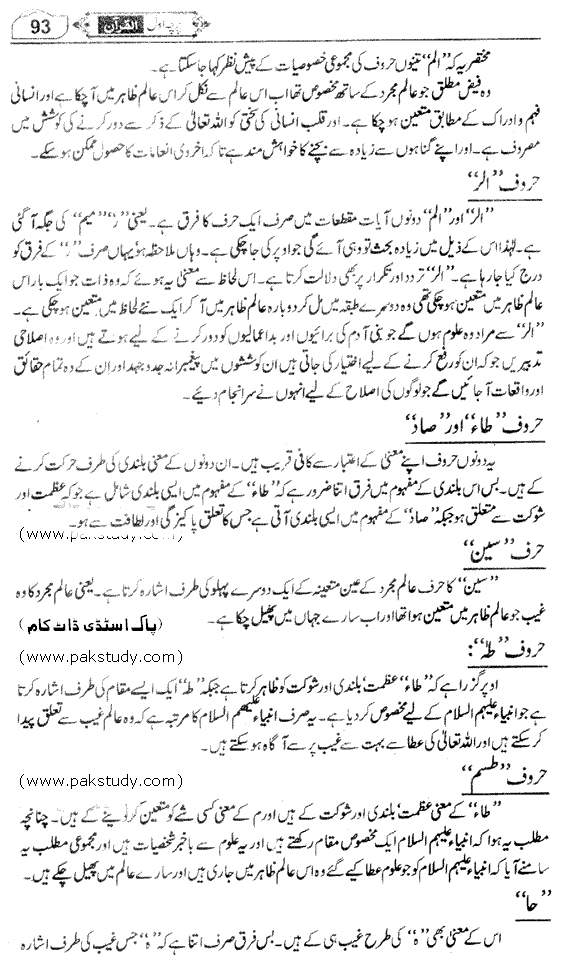 پرچہ اول القرآن 93
مختصر یہ کہ ”الم“ تینوں حروف کی مجموعی خصوصیات کے پیش نظر کہا جا سکتا ہے۔
وہ فیض مطلق جو عالم مجرد کے ساتھ مخصوص تھا اب اس عالم سے نکل کر اس عالم ظاہر میں آ چکا ہے اور انسانی
فہم و ادراک کے مطابق متعین ہو چکا ہے۔ اور قلب انسانی کی سختی کو اللہ تعالیٰ کے ذکر سے دور کرنے کی کوشش میں
مصروف ہے۔ اور اپنے گناہوں سے زیادہ سے بچنے کا خواہش مند ہے تا کہ اخروی انعامات کا حصول ممکن ہو سکے۔
حروف ”الر“
”الر“ اور ”الم“ دونوں آیات مقطعات میں صرف ایک حرف کا فرق ہے۔ یعنی ”ر“ ”میم“ کی جگہ آ گئی
ہے۔ لہٰذا اس کے ذیل میں زیادہ بحث تو وہی آئے گی جو اوپر کی جا چکی ہے۔ وہاں ملاحظہ ہو یہاں صرف ”ر“ کے فرق کو
درج کیا جا رہا ہے۔ ”الر“ تردد اور تکرار پر بھی دلالت کرتا ہے۔ اس لحاظ سے معنی یہ ہوئے کہ وہ ذات جو ایک بار اس
عالم ظاہر میں متعین ہو چکی تھی وہ دوسرے طبقہ میں مل کر دوبارہ عالم ظاہر میں آ کر ایک نئے لحاظ میں متعین ہو چکی ہے۔
”الر“ سے مراد وہ علوم ہوں گے جو بنی آدم کی برائیوں اور بداعمالیوں کو دور کرنے کے لیے ہوتے ہیں اور وہ اصلاحی
تدبیریں جو کہ ان کو رفع کرنے کے لیے اختیار کی جاتی ہیں ان کو کششوں میں پیغمبرانہ جدوجہد اور ان کے وہ تمام حقائق
اور واقعات آ جائیں گے جو لوگوں کی اصلاح کے لیے انہوں نے سرانجام دیئے۔
حروف ”طاء“ اور ”صاد“
یہ دونوں حروف اپنے معنیٰ کے اعتبار سے کافی قریب ہیں۔ ان دونوں کے معنی بلندی کی طرف حرکت کرنے
کے ہیں۔ بس اس بلندی کے مفہوم میں فرق اتنا ضرور ہے کہ ”طاء“ کے مفہوم میں ایسی بلندی شامل ہے جو کہ عظمت اور
شوکت سے متعلق ہو جبکہ ”صاد“ کے مفہوم میں ایسی بلندی آتی ہے جس کا تعلق پاکیزگی اور لطافت سے ہو۔
(www.pakstudy.com)
حرف ”سین“
”سین“ کا حرف عالم مجرد کے عین متعینہ کے ایک دوسرے پہلو کی طرف اشارہ کرتا ہے۔ یعنی عالم مجرد کا وہ
غیب جو عالم ظاہر میں متعین ہوا تھا اور اب سارے جہاں میں پھیل چکا ہے۔ (پاک اسٹڈی ڈاٹ کام)
حروف ”طہٰ“:
(www.pakstudy.com)
اوپر گزرا ہے کہ ”طاء“ عظمت‘ بلندی اور شوکت کو ظاہر کرتا ہے جبکہ ”طہٰ“ ایک ایسے مقام کی طرف اشارہ کرتا
ہے جو انبیاء علیہم السلام کے لیے مخصوص کر دیا ہے۔ یہ صرف انبیاء علیہم السلام کا مرتبہ ہے کہ وہ عالم غیب سے تعلق پیدا
کر سکتے ہیں اور اللہ تعالیٰ کی عطا سے بہت سے غیب پر سے آگاہ ہو سکتے ہیں۔
حروف ”طسم“
(www.pakstudy.com)
”طاء“ کے معنی عظمت‘ بلندی اور شوکت کے ہیں اور م کے معنی کسی شے کو متعین کر دینے کے ہیں۔ چنانچہ
مطلب یہ ہوا کہ انبیاء علیہم السلام ایک مخصوص مقام رکھتے ہیں اور یہ علوم سے باخبر شخصیات ہیں اور مجموعی مطلب یہ
سامنے آیا کہ انبیاء علیہم السلام کو جو علوم عطا کیے گئے وہ اس عالم ظاہر میں جاری ہیں اور سارے عالم میں پھیل چکے ہیں۔
”حا“
اس کے معنیٰ بھی ”ہ“ کی طرح غیب ہی کے ہیں۔ بس فرق صرف اتنا ہے کہ ”ہ“ جس غیب کی طرف اشارہ